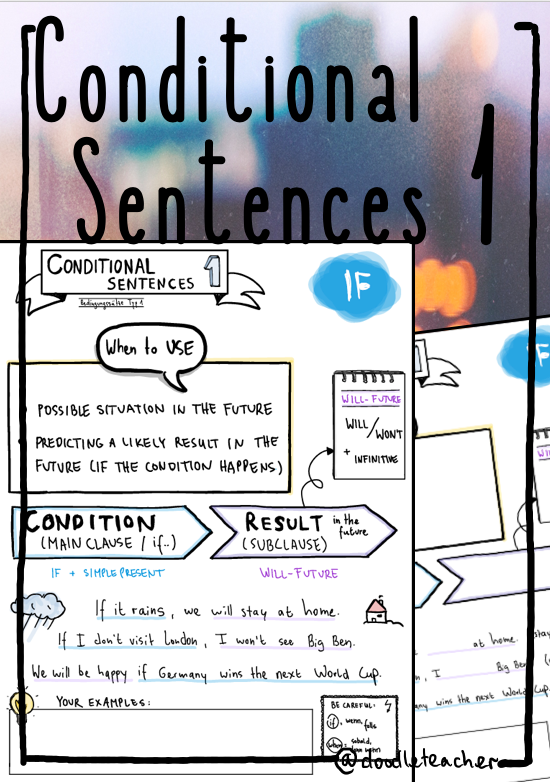 Conditional
Sentences 1
CONDITIONAL
SENTENCES 1
Bedingungssätze Typ 1
IF
When to USE
POSSIBLE SITUATION IN THE FUTURE
PREDICTING A LIKELY RESULT IN THE
FUTURE (IF THE CONDITION HAPPENS)
WILL-FUTURE
WILL/WON'T
+ INFINITIVE
CONDITION
(MAIN CLAUSE / if..)
RESULT in the future
(SUBCLAUSE)
IF + SIMPLE PRESENT
WILL-FUTURE
If it rains, we will stay at home.
If I don't visit London, I won't see Big Ben.
We will be happy if Germany wins the next World Cup.
YOUR EXAMPLES:
BE CAREFUL:
if: wenn, falls
when: sobald,
dann wenn
@doodleteacher
F
at home.
, I
Big Ben
any wins the next World Cup.